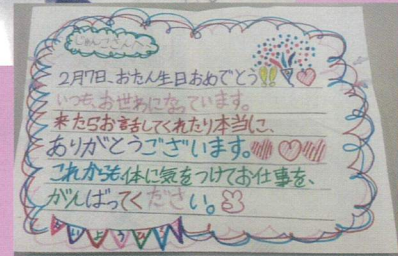 じゅんこさんへ
2月7日、おたん生日おめでとう!!
いつも、お世わになっています。
来たらお話してくれたり本当に、
ありがとうございます。
これからも体に気をつけてお仕事を、
がんばってください。